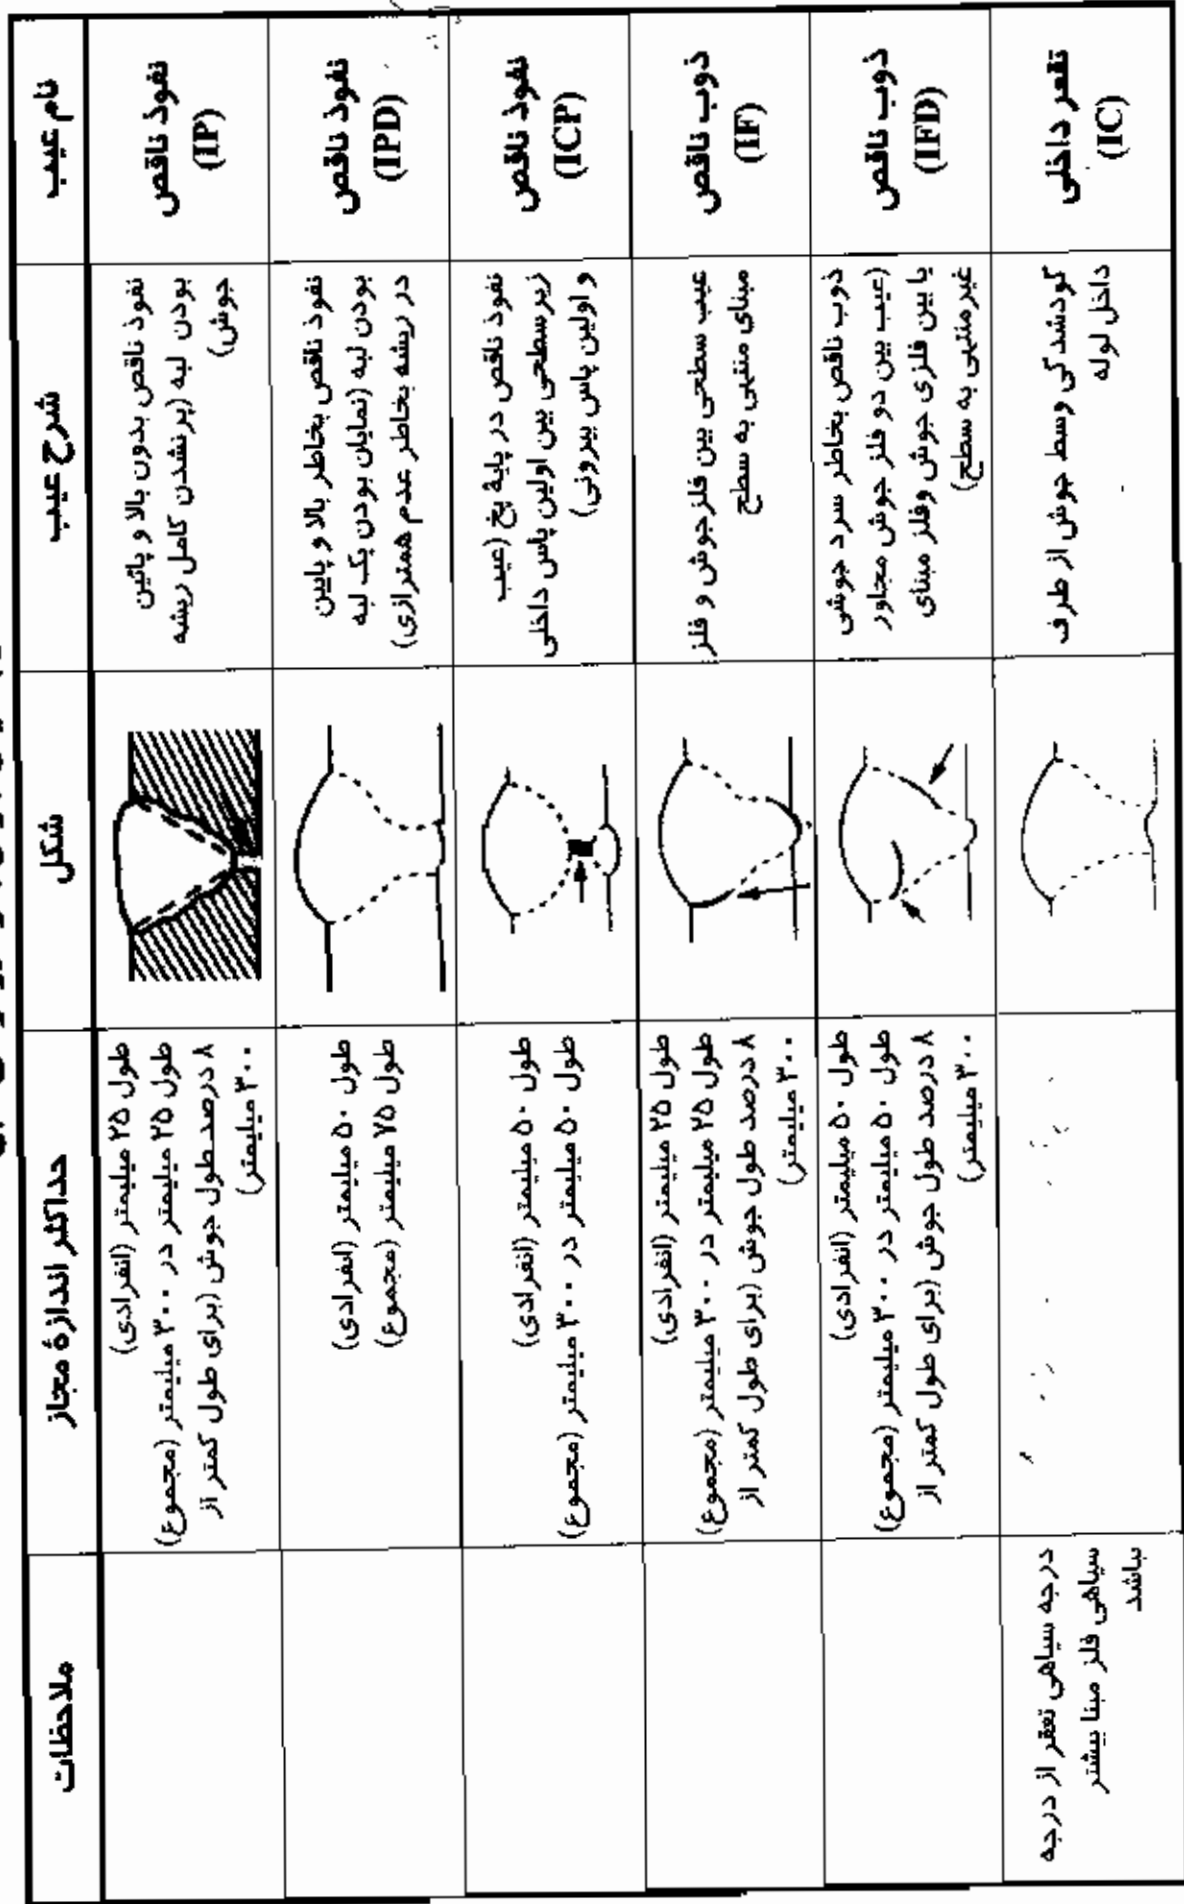 نام عیب
شرح عیب
شکل
حداکثر اندازهٔ مجاز
ملاحظات
نفوذ ناقص
(IP)
نفوذ ناقص بدون بالا و پائین
بودن لبه (پر نشدن کامل ریشه
جوش)
طول ۲۵ میلیمتر (انفرادی)
طول ۲۵ میلیمتر در ۳۰۰ میلیمتر (مجموع)
۸ درصد طول جوش (برای طول کمتر از
۳۰۰ میلیمتر)
نفوذ ناقص
(IPD)
نفوذ ناقص بخاطر بالا و پایین
بودن لبه (نمایان بودن یک لبه
در ریشه بخاطر عدم همترازی)
طول ۵۰ میلیمتر (انفرادی)
طول ۷۵ میلیمتر (مجموع)
نفوذ ناقص
(ICP)
نفوذ ناقص در پایهٔ پخ (عیب
زیرسطحی بین اولین پاس داخلی
و اولین پاس بیرونی)
طول ۵۰ میلیمتر (انفرادی)
طول ۵۰ میلیمتر در ۳۰۰ میلیمتر (مجموع)
ذوب ناقص
(IF)
عیب سطحی بین فلزجوش و فلز
مبنای منتهی به سطح
طول ۲۵ میلیمتر (انفرادی)
طول ۲۵ میلیمتر در ۳۰۰ میلیمتر (مجموع)
۸ درصد طول جوش (برای طول کمتر از
۳۰۰ میلیمتر)
ذوب ناقص
(IFD)
ذوب ناقص بخاطر سرد جوشی
(عیب بین دو فلز جوش مجاور
یا بین فلزی جوش وفلز مبنای
غیرمنتهی به سطح)
طول ۵۰ میلیمتر (انفرادی)
طول ۵۰ میلیمتر در ۳۰۰ میلیمتر (مجموع)
۸ درصد طول جوش (برای طول کمتر از
۳۰۰ میلیمتر)
تقعر داخلی
(IC)
گودشدگی وسط جوش از طرف
داخل لوله
درجه سیاهی تعقر از درجه
سیاهی فلز مبنا بیشتر
نباشد